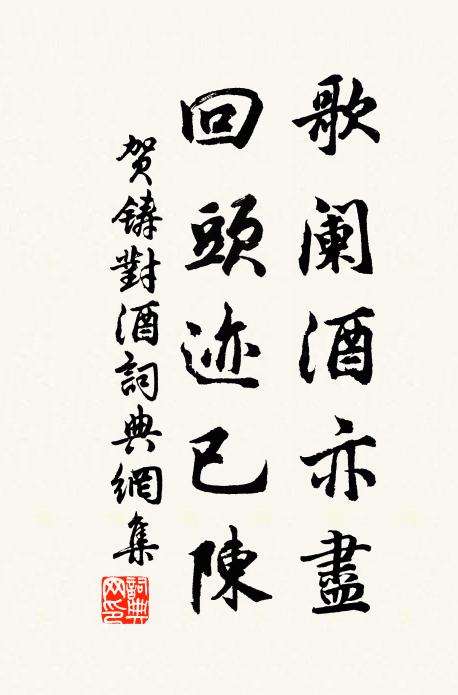 歌阑酒亦盡
回頭迹已陳
贺鑄對酒詞典網集
詞典网印